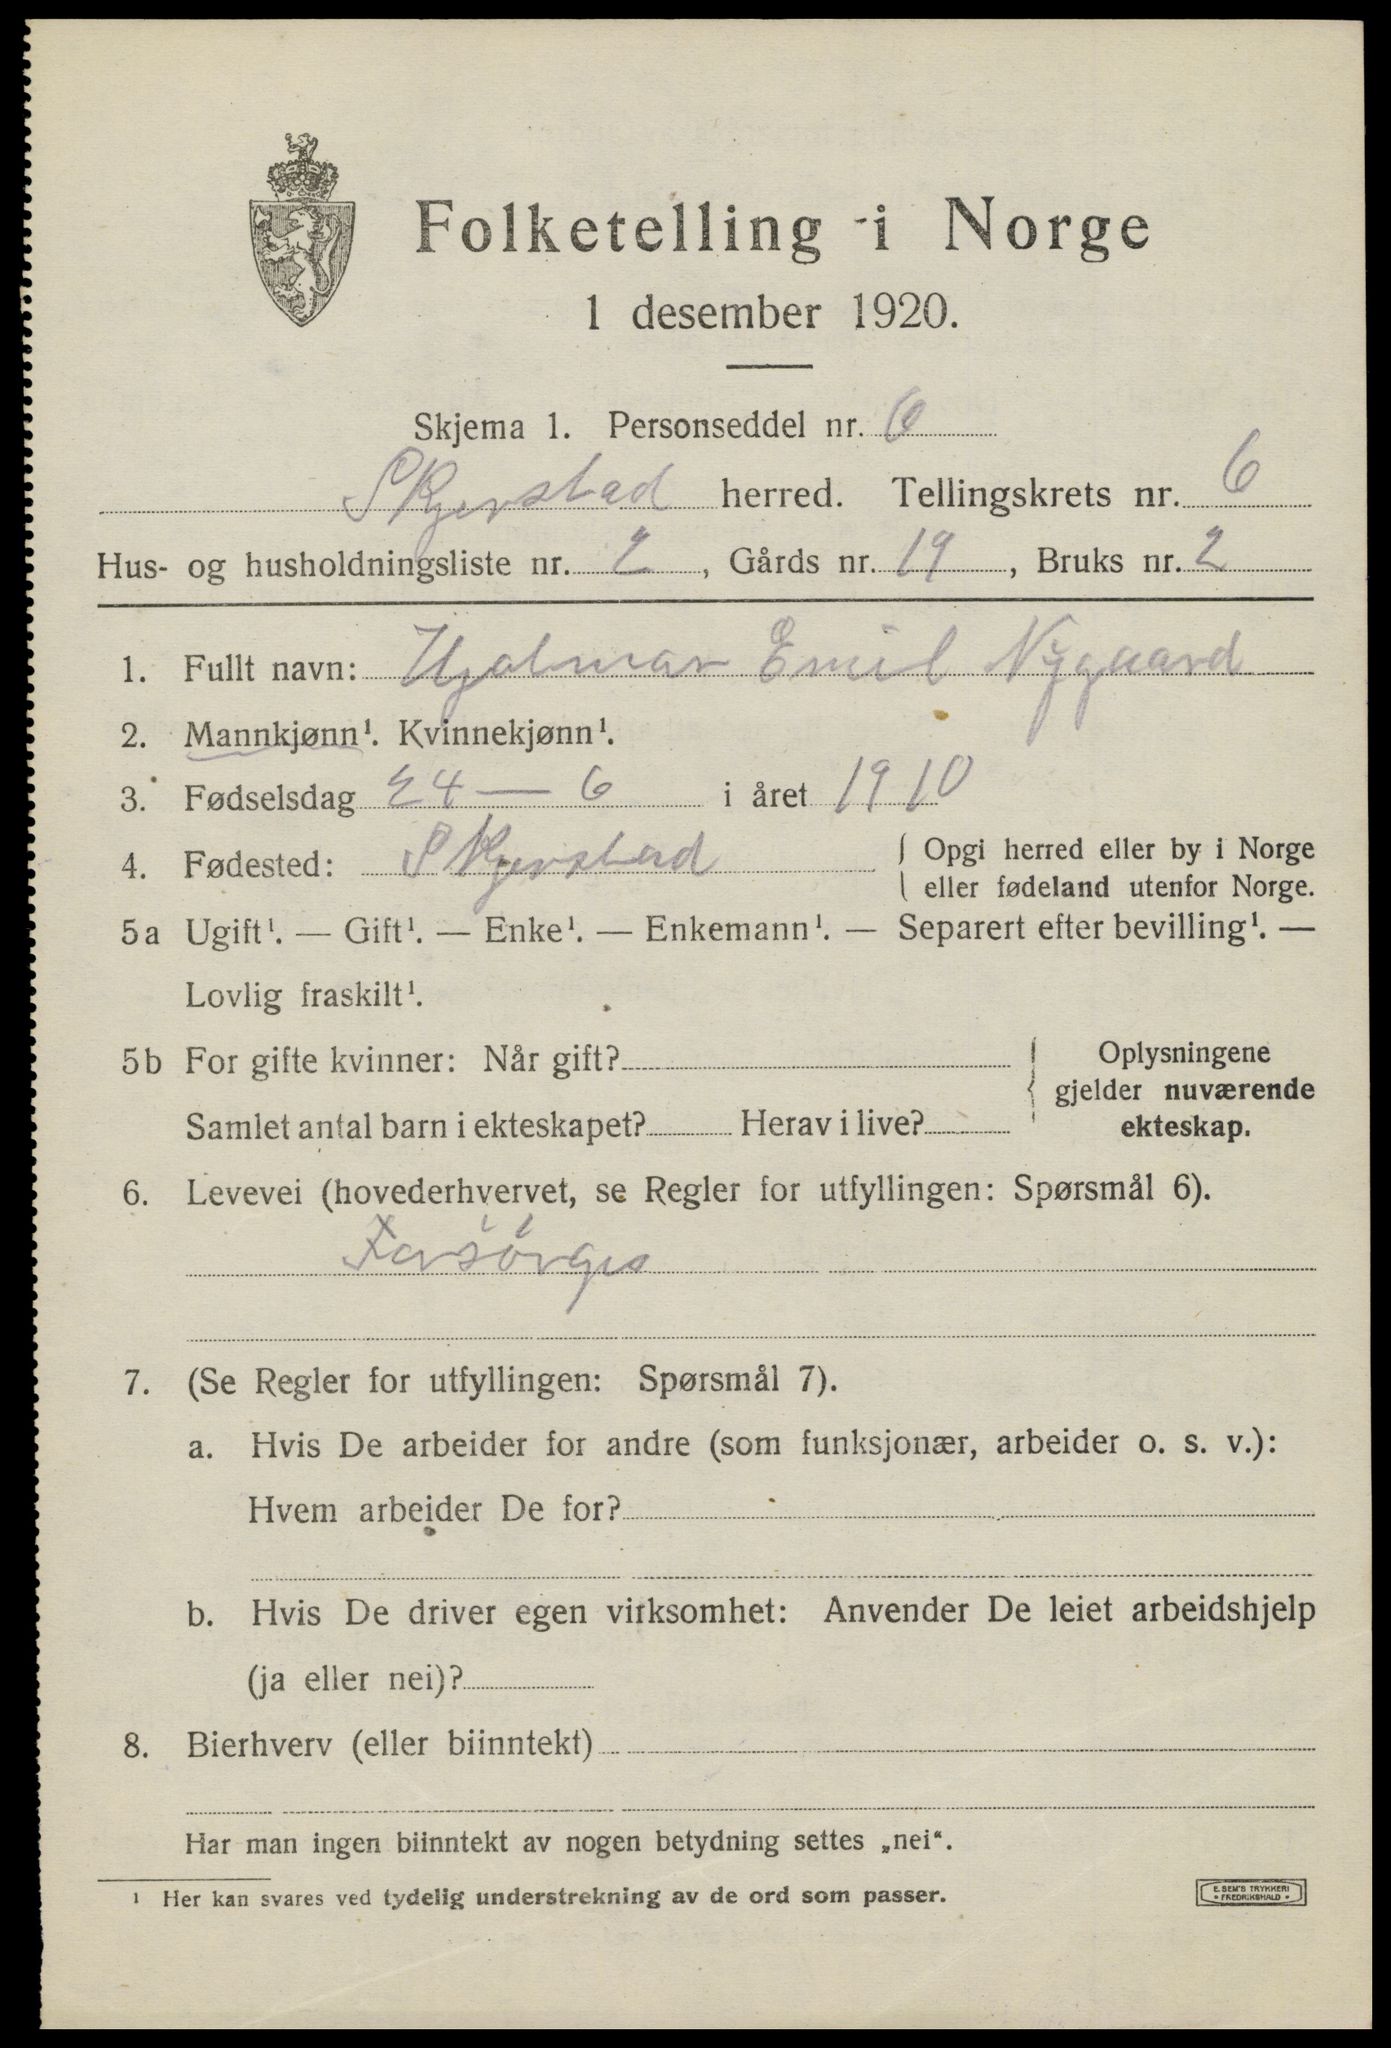 Folketelling i Norge
1 desember 1920.
Skjema 1. Personseddel nr. 6
Skjerstad herred. Tellingskrets nr. 6
Hus- og husholdningsliste nr. 2, Gårds nr. 19, Bruks nr. 2
1. Fullt navn: Hjalmar Emil Nygaard
2. Mannkjønn¹. Kvinnekjønn¹.
3. Fødselsdag 24 — 6 i året 1910
4. Fødested: Skjerstad { Opgi herred eller by i Norge
eller fødeland utenfor Norge.
5a Ugift¹. — Gift¹. — Enke¹. — Enkemann¹. — Separert efter bevilling¹. —
Lovlig fraskilt¹.
5b For gifte kvinner: Når gift?
Samlet antal barn i ekteskapet? Herav i live?
Oplysningene
gjelder nuværende
ekteskap.
6. Levevei (hovederhvervet, se Regler for utfyllingen: Spørsmål 6).
Forsörges
7. (Se Regler for utfyllingen: Spørsmål 7).
a. Hvis De arbeider for andre (som funksjonær, arbeider o. s. v.):
Hvem arbeider De for?
b. Hvis De driver egen virksomhet: Anvender De leiet arbeidshjelp
(ja eller nei)?
8. Bierhverv (eller biinntekt)
Har man ingen biinntekt av nogen betydning settes „nei“.
¹ Her kan svares ved tydelig understrekning av de ord som passer.
E. SEM'S TRYKKERI
• FREDRIKSHALD •